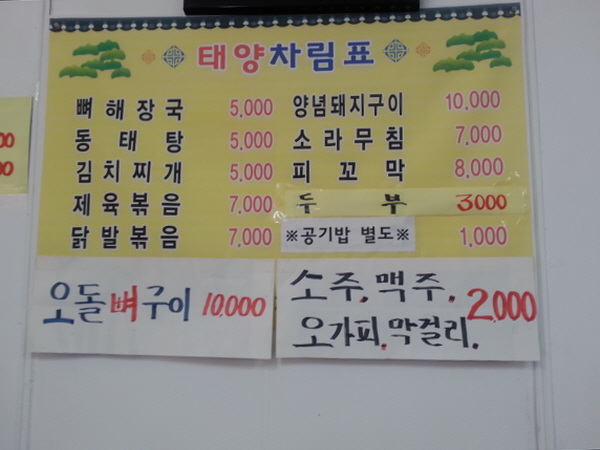 태양차림표
뼈해장국 5,000
동태탕 5,000
김치찌개 5,000
제육볶음 7,000
닭발볶음 7,000
양념돼지구이 10,000
소라무침 7,000
피꼬막 8,000
두부 3000
※공기밥 별도※ 1,000
오돌뼈구이 10,000
소주, 맥주,
오가피, 막걸리, 2,000